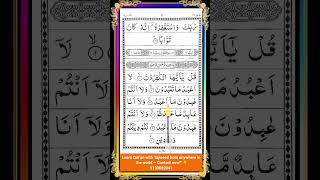 رَبِّكَ وَاسْتَغْفِرْهُ ؕ اِنَّهٗ كَانَ
تَوَّابًا
قُلْ يٰٓاَيُّهَا الْكٰفِرُوْنَ لَآ
اَعْبُدُ مَا تَعْبُدُوْنَ وَلَآ اَنْتُمْ
عٰبِدُوْنَ مَآ اَعْبُدُ وَلَآ اَنَا
عَابِدٌ مَّا عَبَدْتُّمْ وَلَآ اَنْتُمْ
عٰبِدُوْنَ مَآ اَعْبُدُ لَكُمْ دِيْنُكُمْ
وَلِيَ دِيْنِ
Learn Qur'an with Tajweed from anywhere in
the world – Contact now!